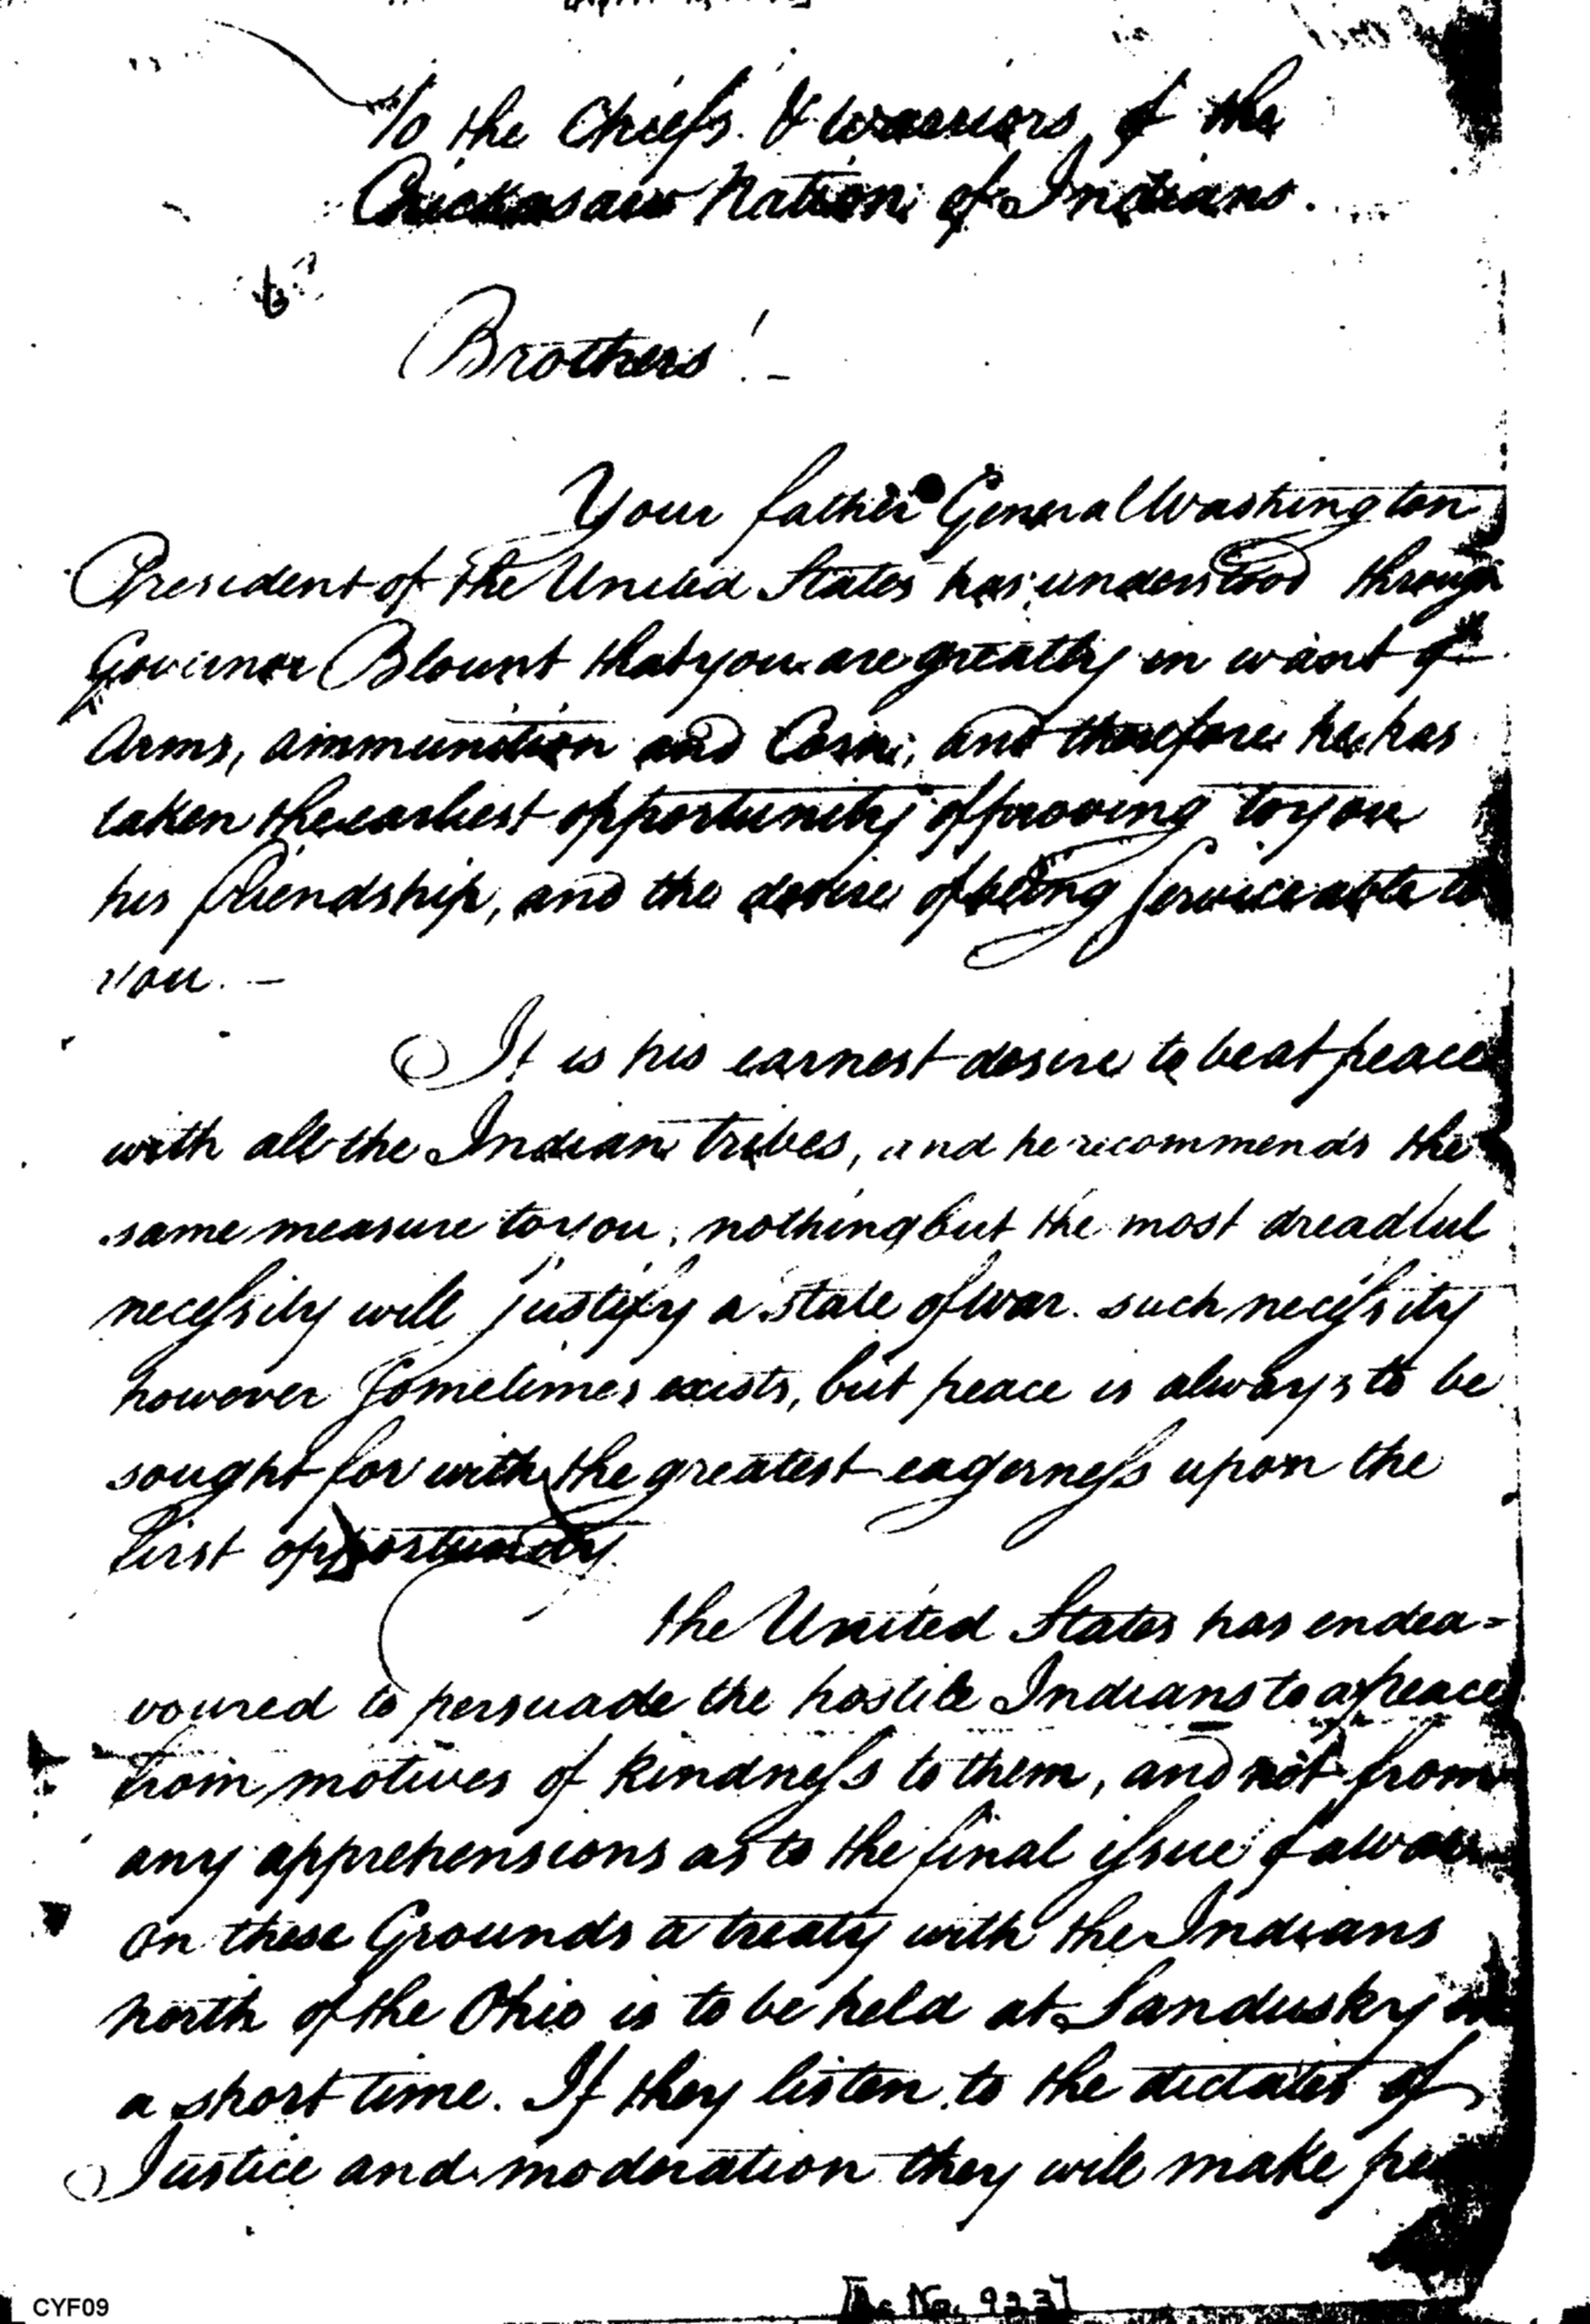 To the Chiefs & Warriors of the
Chickasaw Nation of Indians.
Brothers! -
Your father General Washington
President of the United States has understood through
Governor Blount that you are greatly in want of
Arms, ammunition and Corn; and therefore he has
taken the earliest opportunity of proving to you
his friendship, and the desire of being Serviceable to
you. -
It is his earnest desire to be at peace
with all the Indian tribes, and he recommends the
same measure to you, nothing but the most dreadful
necessity will justify a state of war. such necessity
however Sometimes exists, but peace is always to be
sought for with the greatest eagerness upon the
first opportunity
the United States has endea=
voured to persuade the hostile Indians to a peace
from motives of kindness to them, and not from
any apprehensions as to the final issue of a war
on these Grounds a treaty with the Indians
north of the Ohio is to be held at Sandusky in
a short time. If they listen to the dictates of
Justice and moderation they will make
[Ac No. 923]
CYF09